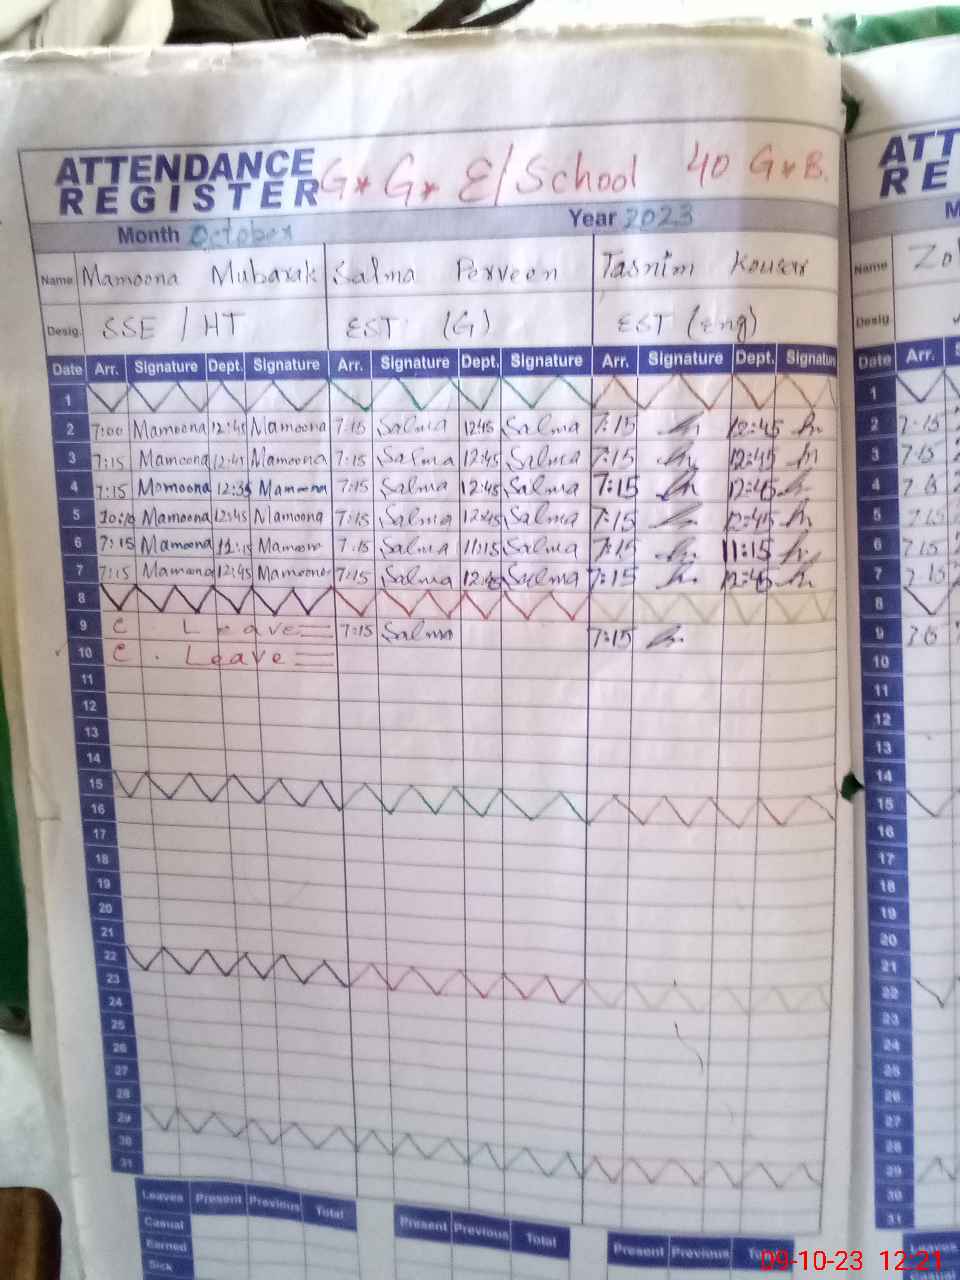 ATTENDANCE REGISTER G*G* E/School 40 G*B.
ATT
RE
Month October Year 2023
M
Name Mamoona Mubarak Salma Perveen Tasnim Kousar
Name
Desig. SSE / HT EST (G) EST (Eng)
Desig.
Date Arr. Signature Dept. Signature Arr. Signature Dept. Signature Arr. Signature Dept. Signature
Date Arr.
1
1
2 7:00 Mamoona 12:45 Mamoona 7:15 Salma 12:45 Salma 7:15 12:45
2 7:15
3 7:15 Mamoona 12:45 Mamoona 7:15 Salma 12:45 Salma 7:15 12:45
3 7:15
4 7:15 Mamoona 12:35 Mamoona 7:15 Salma 12:45 Salma 7:15 12:45
4
5 Mamoona 12:45 Mamoona 7:15 Salma 12:45 Salma 7:15 12:45
5 7:15
6 7:15 Mamoona 11:15 Mamoona 7:15 Salma 11:15 Salma 7:15 11:15
6 7:15
7 7:15 Mamoona 12:45 Mamoona 7:15 Salma 12:45 Salma 7:15 12:45
7 7:15
8
8
9 C. Leave 7:15 Salma 7:15
9
10 C. Leave
10
11
11
12
12
13
13
14
14
15
15
16
16
17
17
18
18
19
19
20
20
21
21
22
22
23
23
24
24
25
25
26
26
27
27
28
28
29
29
30
30
31
31
Leaves Present Previous Total Present Previous Total Present Previous
Leaves
Casual
Casual
Earned
Sick
09-10-23 12:21